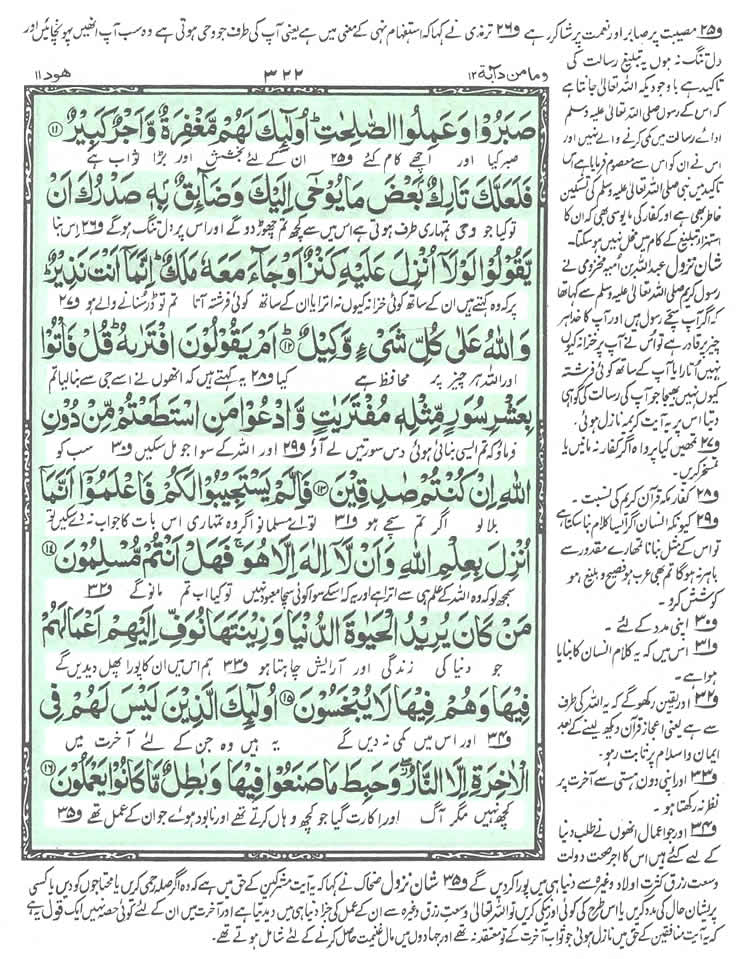 ف۲۵ مصیبت پر صابر اور نعمت پر شاکر رہے ف۲۶ ترمذی نے کہا کہ استفہام نہی کے معنی میں ہے یعنی آپ کی طرف جو وحی ہوتی ہے وہ سب آپ انھیں پہونچائیں اور
دل تنگ نہ ہوں یہ تبلیغ رسالت کی
تاکید ہے باوجودیکہ اللہ تعالیٰ جانتا ہے
کہ اس کے رسول صلی اللہ تعالیٰ علیہ وسلم
اداے رسالت میں کمی کرنے والے نہیں اور
اس نے ان کو اس سے معصوم فرمایا ہے اس
تاکید میں نبی صلی اللہ تعالیٰ علیہ وسلم کی تسکین
خاطر بھی ہے اور کفار کی مایوسی بھی کہ ان کا
استہزا تبلیغ کے کام میں مخل نہیں ہوسکتا۔
شان نزول عبداللہ بن امیہ مخزومی نے
رسول کریم صلی اللہ تعالیٰ علیہ وسلم سے کہا تھا
کہ اگر آپ سچے رسول ہیں اور آپ کا خدا ہر
چیز پر قادر ہے تو اس نے آپ پر خزانہ کیوں
نہیں اُتارا یا آپ کے ساتھ کوئی فرشتہ
کیوں نہیں بھیجا جو آپ کی رسالت کی گواہی
دیتا اس پر یہ آیت کریمہ نازل ہوئی۔
ف۲۷ تمھیں کیا پرواہ اگر کفار نہ مانیں یا
تمسخر کریں۔
ف۲۸ کفار مکہ قرآن کریم کی نسبت۔
ف۲۹ کیونکہ انسان اگر ایسا کلام بنا سکتا ہے
تو اس کے مثل بنانا تمھارے مقدور سے
باہر نہ ہوگا تم بھی عرب ہو فصیح و بلیغ ہو
کوشش کرو۔
ف۳۰ اپنی مدد کے لئے۔
ف۳۱ اس میں کہ یہ کلام انسان کا بنایا
ہوا ہے۔
ف۳۲ اور یقین رکھوگے کہ یہ اللہ کی طرف
سے ہے یعنی اعجاز قرآن دیکھ لینے کے بعد
ایمان و اسلام پر ثابت رہو۔
ف۳۳ اور اپنی دون ہمتی سے آخرت پر
نظر نہ رکھتا ہو۔
ف۳۴ اور جو اعمال انھوں نے طلب دنیا
کے لیے کئے ہیں اس کا اجر صحت دولت
ومامن دابة ۱۲ ۳۲۲ هود ۱۱
صَبَرُوْا وَعَمِلُوا الصّٰلِحٰتِ ؕ اُولٰٓئِكَ لَهُمْ مَّغْفِرَةٌ وَّاَجْرٌ كَبِيْرٌ ۱۱
صبر کیا اور اچھے کام کئے ف۲۵ ان کے لئے بخشش اور بڑا ثواب ہے
فَلَعَلَّكَ تَارِكٌۢ بَعْضَ مَا يُوْحٰٓى اِلَيْكَ وَضَآئِقٌۢ بِهٖ صَدْرُكَ اَنْ
تو کیا جو وحی تمہاری طرف ہوتی ہے اس میں سے کچھ تم چھوڑ دو گے اور اس پر دل تنگ ہو گے ف۲۶ اس بنا
يَّقُوْلُوْا لَوْلَاۤ اُنْزِلَ عَلَيْهِ كَنْزٌ اَوْ جَآءَ مَعَهٗ مَلَكٌ ؕ اِنَّمَاۤ اَنْتَ نَذِيْرٌ ؕ
پر کہ وہ کہتے ہیں ان کے ساتھ کوئی خزانہ کیوں نہ اترا یا ان کے ساتھ کوئی فرشتہ آتا تم تو ڈر سنانے والے ہو ف۲۷
وَاللّٰهُ عَلٰى كُلِّ شَیْءٍ وَّكِيْلٌ ؕ ۱۲ اَمْ يَقُوْلُوْنَ افْتَرٰىهُ ؕ قُلْ فَاْتُوْا
اور اللہ ہر چیز پر محافظ ہے کیا ف۲۸ یہ کہتے ہیں کہ انھوں نے اسے جی سے بنا لیا تم
بِعَشْرِ سُوَرٍ مِّثْلِهٖ مُفْتَرَيٰتٍ وَّادْعُوْا مَنِ اسْتَطَعْتُمْ مِّنْ دُوْنِ
فرماؤ کہ تم ایسی بنائی ہوئی دس سورتیں لے آؤ ف۲۹ اور اللہ کے سوا جو مل سکیں ف۳۰ سب کو
اللّٰهِ اِنْ كُنْتُمْ صٰدِقِيْنَ ۱۳ فَاِلَّمْ يَسْتَجِيْبُوْا لَكُمْ فَاعْلَمُوْۤا اَنَّمَاۤ
بلالو اگر تم سچے ہو ف۳۱ تو اے مسلمانو اگر وہ تمہاری اس بات کا جواب نہ دے سکیں تو
اُنْزِلَ بِعِلْمِ اللّٰهِ وَاَنْ لَّاۤ اِلٰهَ اِلَّا هُوَ ۚ فَهَلْ اَنْتُمْ مُّسْلِمُوْنَ ۱۴
سمجھ لو کہ وہ اللہ کے علم ہی سے اترا ہے اور یہ کہ اسکے سوا کوئی سچا معبود نہیں تو کیا اب تم مانو گے ف۳۲
مَنْ كَانَ يُرِيْدُ الْحَيٰوةَ الدُّنْيَا وَزِيْنَتَهَا نُوَفِّ اِلَيْهِمْ اَعْمَالَهُمْ
جو دنیا کی زندگی اور آرائش چاہتا ہو ف۳۳ ہم اس میں ان کا پورا پھل دیدیں گے
فِيْهَا وَهُمْ فِيْهَا لَا يُبْخَسُوْنَ ۱۵ اُولٰٓئِكَ الَّذِيْنَ لَيْسَ لَهُمْ فِى
ف۳۴ اور اس میں کمی نہ دیں گے یہ ہیں وہ جن کے لئے آخرت میں
الْاٰخِرَةِ اِلَّا النَّارُ ۖ وَحَبِطَ مَا صَنَعُوْا فِيْهَا وَبٰطِلٌ مَّا كَانُوْا يَعْمَلُوْنَ ۱۶
کچھ نہیں مگر آگ اور اکارت گیا جو کچھ وہاں کرتے تھے اور نابود ہوے جو ان کے عمل تھے ف۳۵
وسعت رزق کثرت اولاد وغیرہ سے دنیا ہی میں پورا کردیں گے ف۳۵ شان نزول ضحاک نے کہا کہ یہ آیت مشرکین کے حق میں ہے کہ وہ اگر صلہ رحمی کریں یا محتاجوں کو دیں یا کسی
پریشان حال کی مدد کریں یا اس طرح کی کوئی اور نیکی کریں تو اللہ تعالیٰ وسعت رزق وغیرہ سے ان کے عمل کی جزا دنیا ہی میں دیدیتا ہے اور آخرت میں ان کے لئے کوئی حصہ نہیں ایک قول یہ ہے
کہ یہ آیت منافقین کے حق میں نازل ہوئی جو ثواب آخرت کے تو معتقد نہ تھے اور جہادوں میں مال غنیمت حاصل کرنے کے لئے شامل ہوتے تھے۔